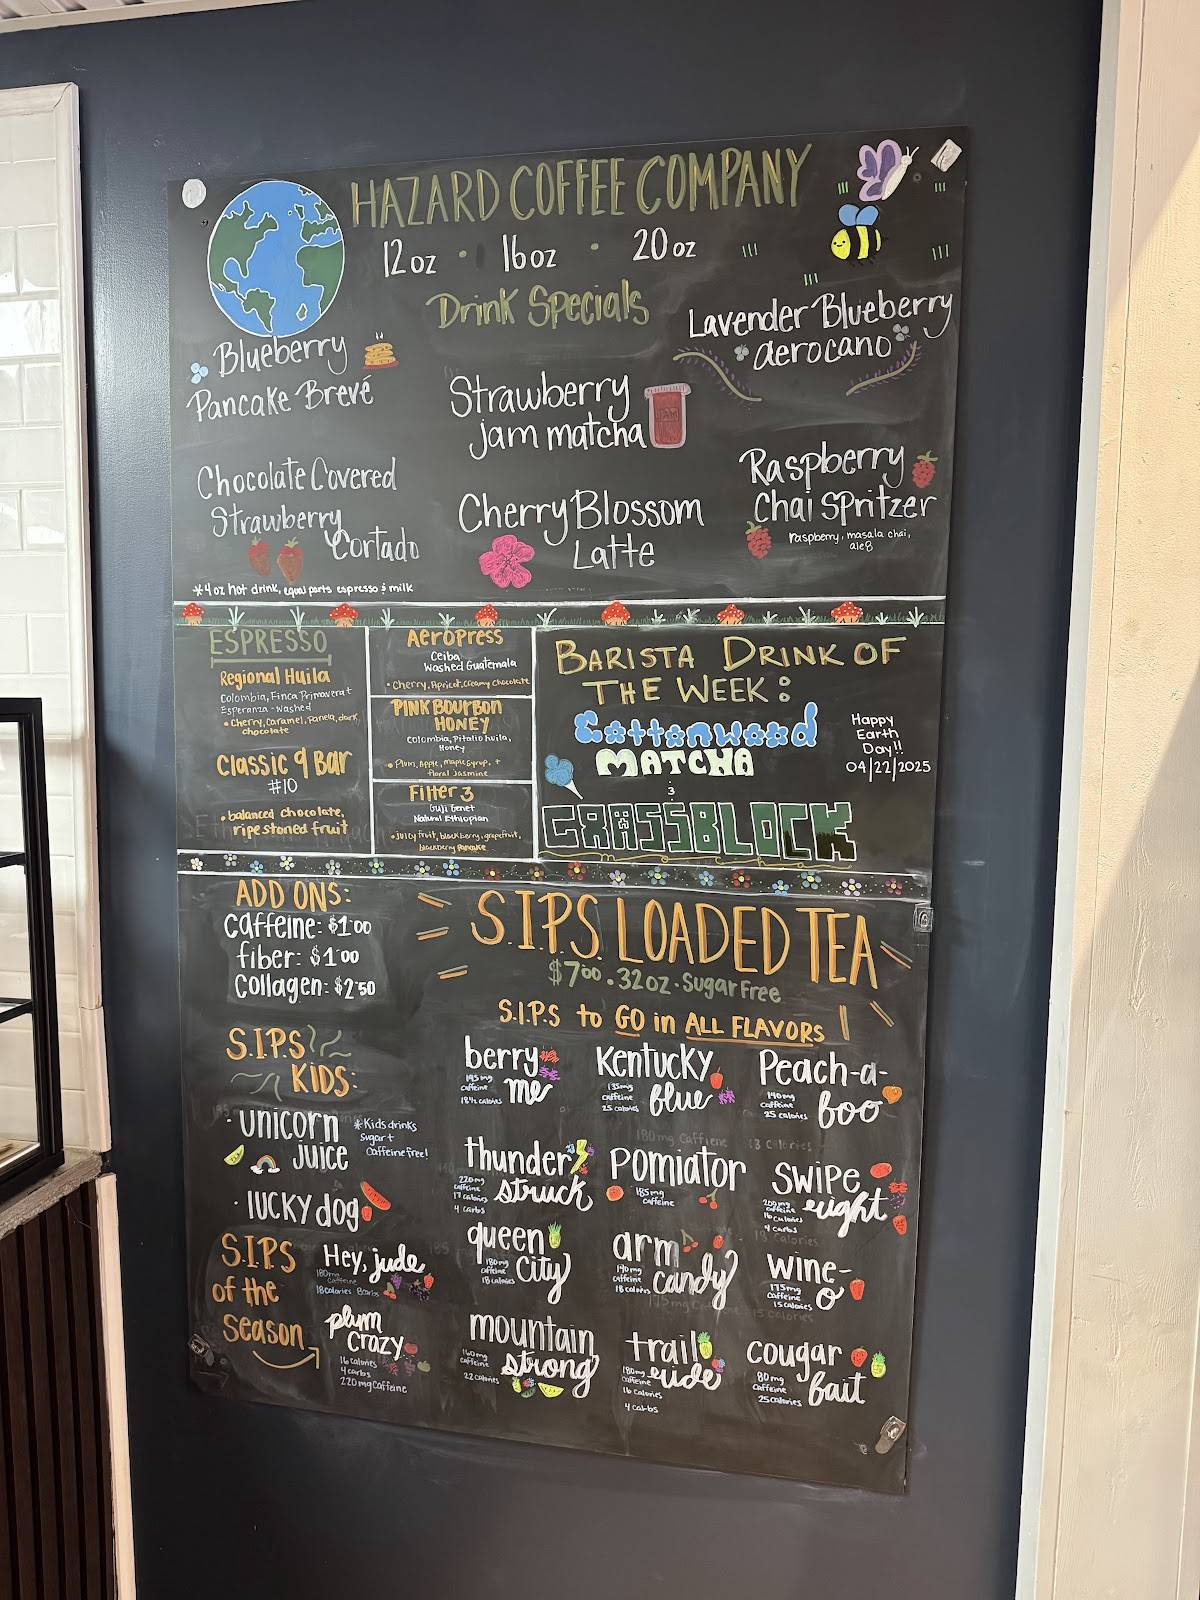 HAZARD COFFEE COMPANY
12 oz · 16 oz · 20 oz
Drink Specials
Blueberry
Pancake Brevé
Strawberry
Jam matcha
JAM
Lavender Blueberry
aerocano
Chocolate Covered
Strawberry
Cortado
*4 oz hot drink, equal parts espresso & milk
Cherry Blossom
Latte
Raspberry
Chai Spritzer
raspberry, masala chai,
ale8
ESPRESSO
Regional Huila
Colombia, Finca Primavera +
Esperanza - washed
• Cherry, Caramel, Panela, dark
chocolate
Classic 9 Bar
#10
• balanced chocolate,
ripe stoned fruit
Aeropress
Ceiba
Washed Guatemala
• Cherry, Apricot, Creamy Chocolate
PINK BOURBON
HONEY
Colombia, Pitalito huila,
Honey
• Plum, Apple, Maple Syrup, +
floral Jasmine
Filter 3
Guji Genet
Natural Ethiopian
• Juicy fruit, blackberry, grapefruit,
blackberry pancake
BARISTA DRINK OF
THE WEEK:
Cottonwood
MATCHA
&
GRASSBLOCK
mocha
Happy
Earth
Day!!
04/22/2025
ADD ONS:
caffeine: $1.00
fiber: $1.00
Collagen: $2.50
S.I.P.S
KIDS:
· unicorn
juice
*Kids drinks
sugar +
Caffeine free!
· lucky dog
S.I.P.S. LOADED TEA
$7.00 · 32oz · Sugar Free
S.I.P.S to GO in ALL FLAVORS
berry
me
195mg
caffeine
18½ calories
Kentucky
blue
135mg
caffeine
25 calories
Peach-a-
boo
140mg
caffeine
25 calories
thunder
struck
220mg
caffeine
17 calories
4 carbs
180mg Caffiene
Pomiator
185mg
caffeine
SWIPE
right
200mg
caffeine
16 calories
4 carbs
queen
City
180mg
caffeine
18 calories
arm
candy
190mg
caffeine
18 calories
wine-
o
175mg
caffeine
15 calories
S.I.P.S
of the
Season
Hey, jude
180mg
caffeine
18 calories 8 carbs
plum
crazy
16 calories
4 carbs
220 mg Caffeine
mountain
strong
160mg
caffeine
22 calories
trail
ride
180mg
caffeine
16 calories
4 carbs
cougar
bait
80mg
caffeine
25 calories